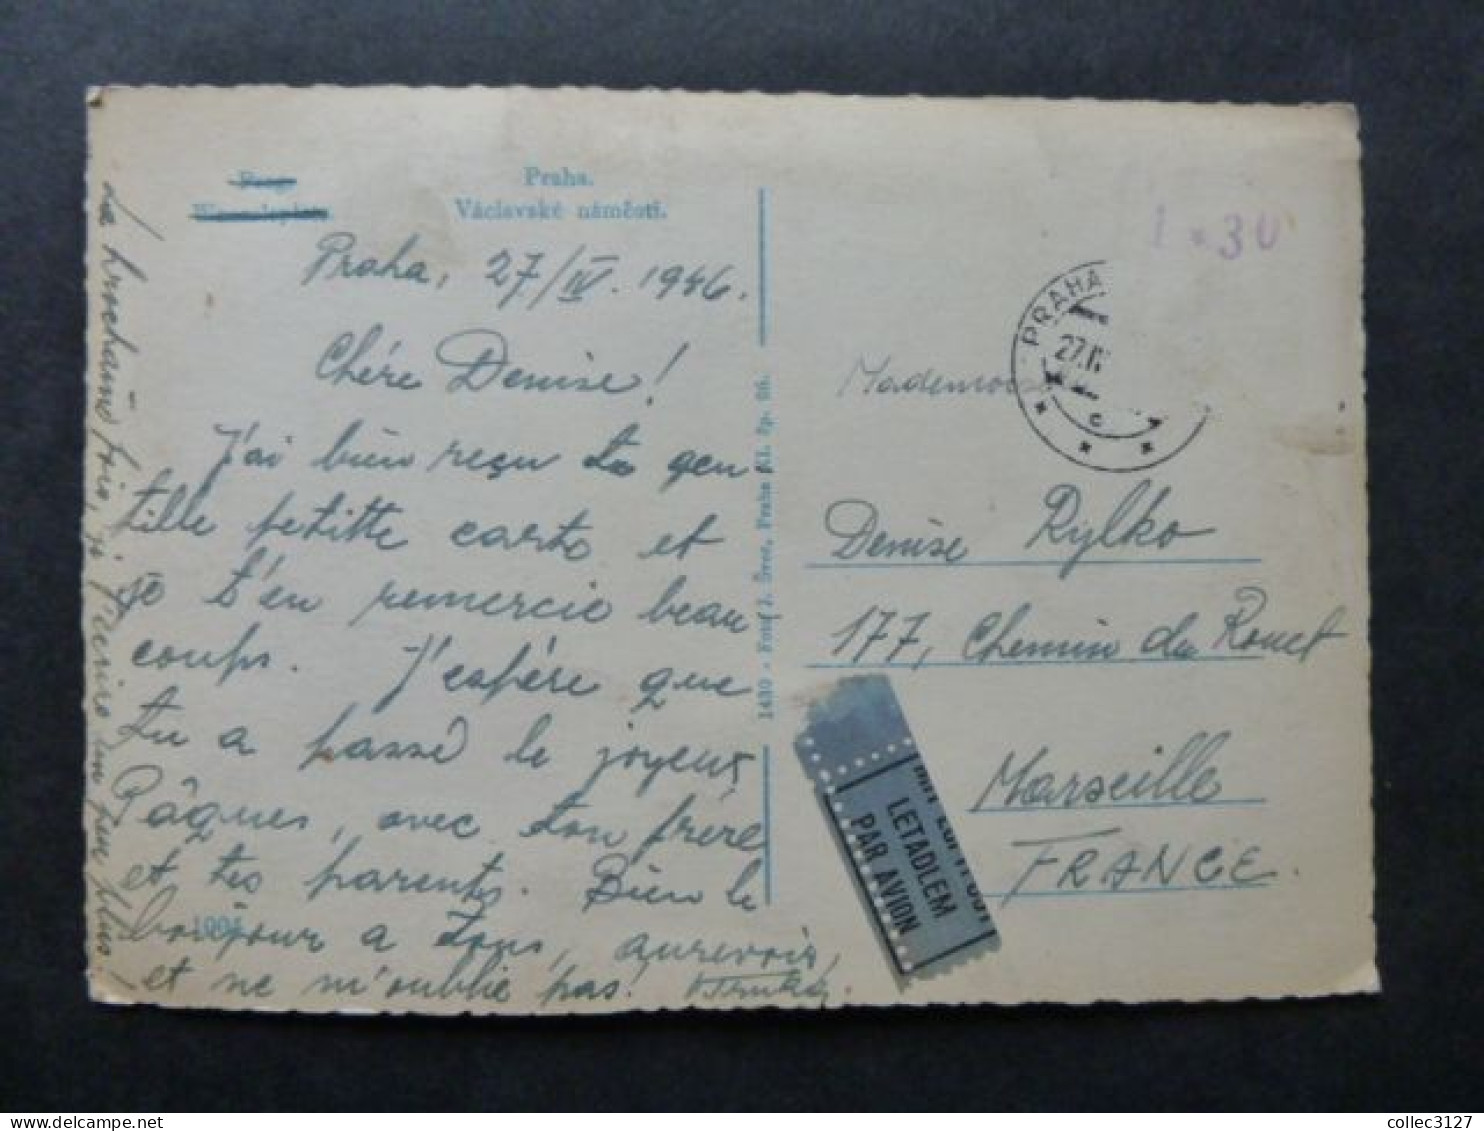 Prag.
Wenzelsplatz.
Praha.
Václavské náměstí.
Praha, 27/IV. 1946.
Chére Denise!
J'ai bien reçu ta gen-
tille petitte carte et
je t'en remercie beau
coups. J'espére que
tu a passé le joyeux
Pâques, avec ton frére
et tes parents. Bien le
bonjour a tous, aurevoir,
et ne m'oublie pas!
La prochaine fois, je t'écrire un peu plus.
1004
1430 - Foto J. Švec, Praha XI. čp. 86.
1.30
PRAHA
27.IV
c
Mademoise
Denise Rylko
177, Chemin du Rouet
Marseille
FRANCE.
LETADLEM
PAR AVION
collec3127